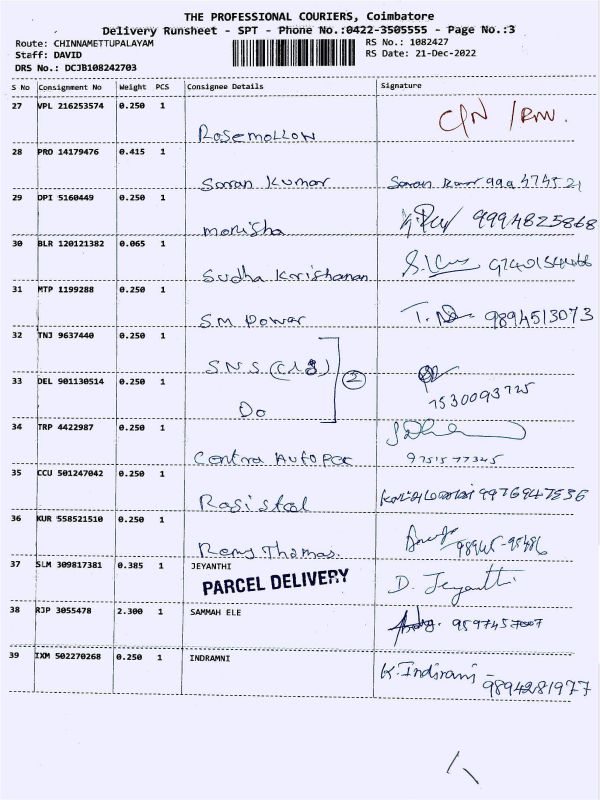 THE PROFESSIONAL COURIERS, Coimbatore
Delivery Runsheet - SPT - Phone No.:0422-3505555 - Page No.:3
Route: CHINNAMETTUPALAYAM RS No.: 1082427
Staff: DAVID RS Date: 21-Dec-2022
DRS No.: DCJB108242703
S No Consignment No Weight PCS Consignee Details Signature
27 VPL 216253574 0.250 1
Rosemollow
28 PRO 14179476 0.415 1
Saran Kumar
29 DPI 5160449 0.250 1
monisha 9994825868
30 BLR 120121382 0.065 1
Sudha Korishanan
31 MTP 1199288 0.250 1
S.M Power 9894513073
32 TNJ 9637440 0.250 1
S.N.S. 2
33 DEL 901130514 0.250 1
Do 7530093725
34 TRP 4422987 0.250 1
Contra Autopac 9751577345
35 CCU 501247042 0.250 1
Rasistal 9976947536
36 KUR 558521510 0.250 1
Remy Thomas.
37 SLM 309817381 0.385 1 JEYANTHI
PARCEL DELIVERY D. Jeyanthi
38 RJP 3055478 2.300 1 SAMMAH ELE
9597457007
39 IXM 502270268 0.250 1 INDRAMNI
K.Indirani -
9894281977